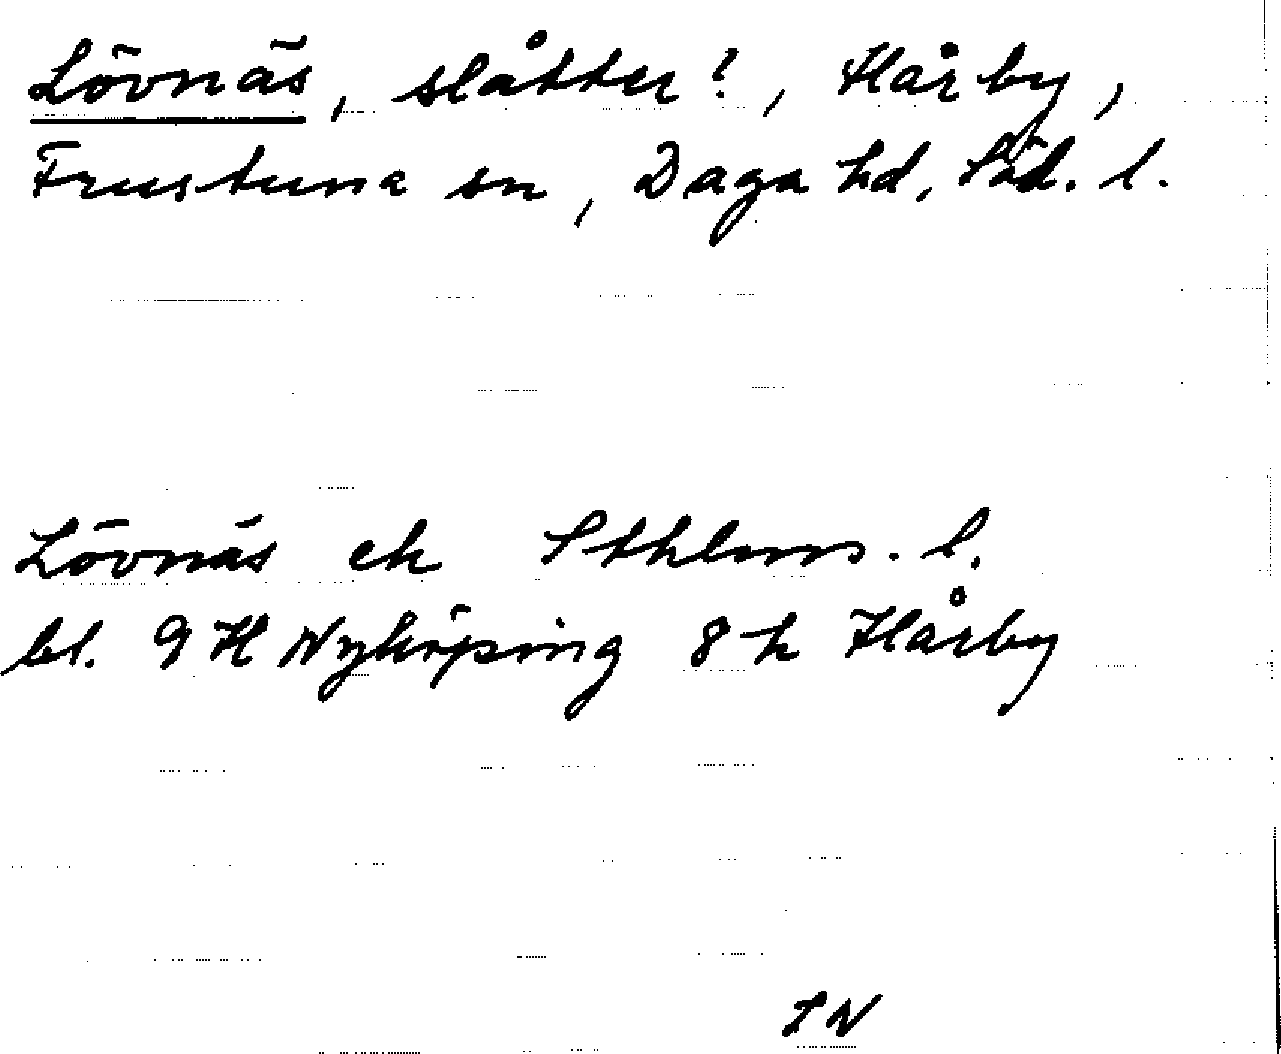 Lövnäs, slåtter?, Hårby,
Frustuna sn, Daga hd, Söd. l.
Lövnäs ek Sthlms. l.
bl. 9 H Nyköping 8 h Hårby